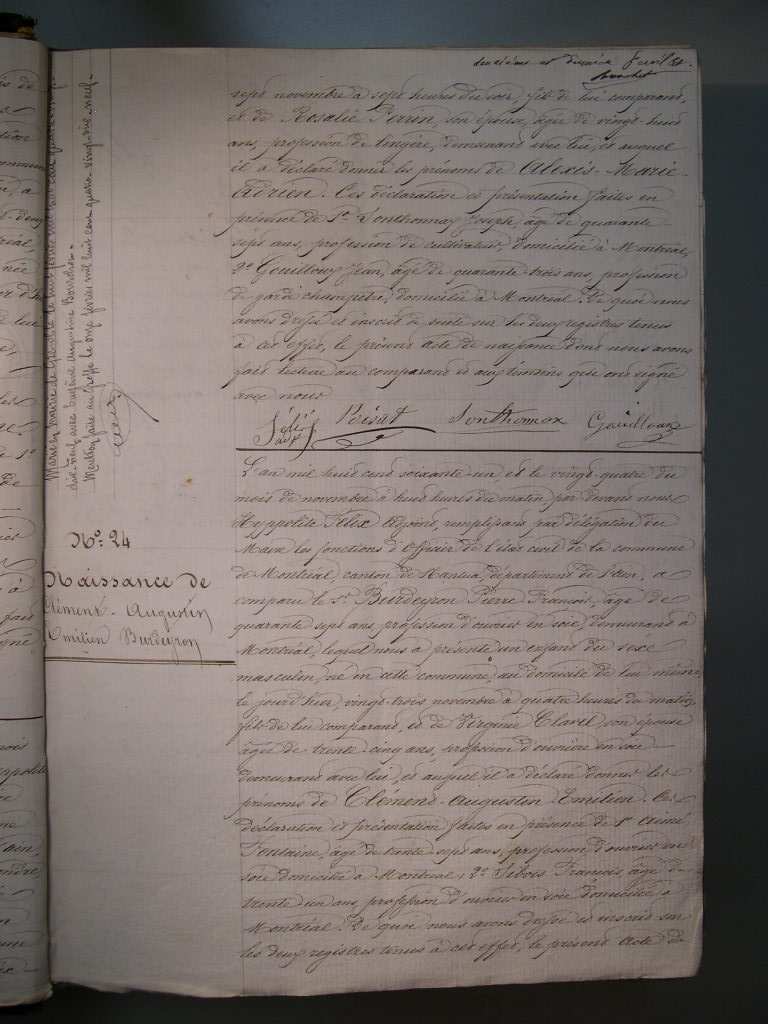 deuxième et dernier feuillet.
sept novembre à sept heures du soir, fils de lui comparant,
et de Rosalie Perrin, son épouse, âgée de vingt-huit
ans, profession de lingère, demeurant avec lui, et auquel
il a déclaré donner les prénoms de Alexis-Marie-
Adrien. Ces déclaration et présentation faites en
présence de 1° Sonthonnax Joseph, âgé de quarante
sept ans, profession de cultivateur, domicilié à Montréal,
2° Gouilloux Jean, âgé de quarante-trois ans, profession
de garde champêtre, domicilié à Montréal. De quoi nous
avons dressé et inscrit de suite sur les deux registres tenus
à cet effet, le présent acte de naissance dont nous avons
fait lecture au comparant et aux témoins qui ont signé
avec nous
Félix Sonthonnax Gouilloux
dix-neuf avec Eugénie Augustine
Mention faite au Greffe le onze février mil huit cent quatre vingt-dix neuf.
N°: 24
Naissance de
Clément-Augustin
Emilien Burdeyron
L'an mil huit cent soixante-un, et le vingt-quatre du
mois de novembre à huit heures du matin, par devant nous
Hyppolite Félix Adjoint, remplissant par délégation du
Maire les fonctions d'Officier de l'état civil de la commune
de Montréal, canton de Nantua, département de l'Ain, a
comparu le Sr. Burdeyron Pierre François, âgé de
quarante sept ans, profession d'ouvrier en soie, demeurant à
Montréal, lequel nous a présenté un enfant du sexe
masculin, né en cette commune, au domicile de lui même
le jour d'hier, vingt-trois novembre à quatre heures du matin,
fils de lui comparant, et de Virginie Clavel, son épouse
âgée de trente-cinq ans, profession d'ouvrière en soie
demeurant avec lui, et auquel il a déclaré donner les
prénoms de Clément-Augustin Emilien. Ces
déclaration et présentation faites en présence de 1° Aimé
Fontaine, âgé de trente-sept ans, profession d'ouvrier en
soie domicilié à Montréal; 2° François, âgé de
trente un ans, profession d'ouvrier en soie domicilié à
Montréal. De quoi nous avons dressé et inscrit sur
les deux registres tenus à cet effet, le présent acte de